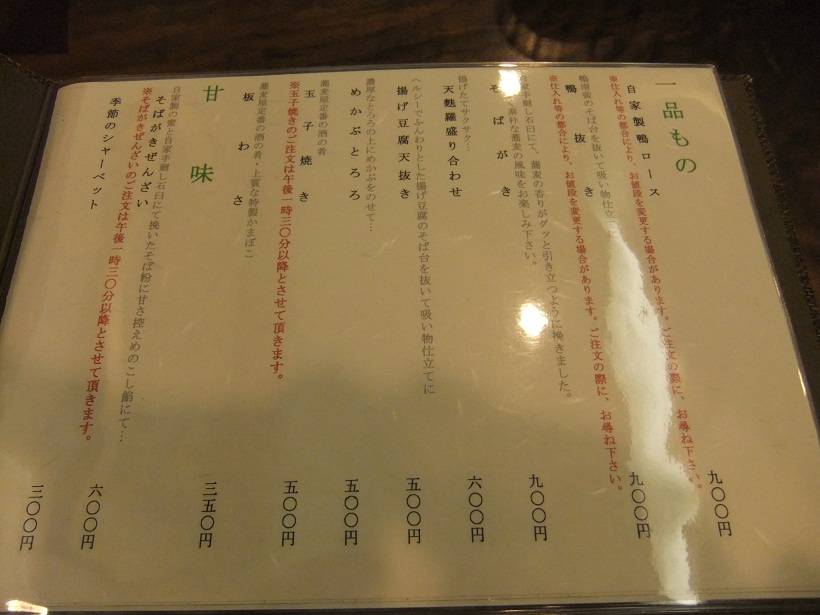 一品もの
自家製鴨ロース 九〇〇円
※仕入れ等の都合により、お値段を変更する場合があります。ご注文の際に、お尋ね下さい。
鴨抜き 九〇〇円
鴨南蛮のそば台を抜いて吸い物仕立
※仕入れ等の都合により、お値段を変更する場合があります。ご注文の際に、お尋ね下さい。
そばがき 九〇〇円
自家手廻し石臼にて、蕎麦の香りがグッと引き立つように挽きました。
素朴な蕎麦の風味をお楽しみ下さい。
天麩羅盛り合わせ 六〇〇円
揚げたてサクサク…
揚げ豆腐天抜き 五〇〇円
ヘルシーでふんわりとした揚げ豆腐のそば台を抜いて吸い物仕立てに
めかぶとろろ 五〇〇円
濃厚なとろろの上にめかぶをのせて…
玉子焼き 五〇〇円
蕎麦屋定番の酒の肴
※玉子焼きのご注文は午後一時三〇分以降とさせて頂きます。
板わさ 三五〇円
蕎麦屋定番の酒の肴・上質な特製かまぼこ
甘味
そばがきぜんざい 六〇〇円
自家製の蜜と自家手廻し石臼にて挽いたそば粉に甘さ控えめのこし餡にて…
※そばがきぜんざいのご注文は午後一時三〇分以降とさせて頂きます。
季節のシャーベット 三〇〇円